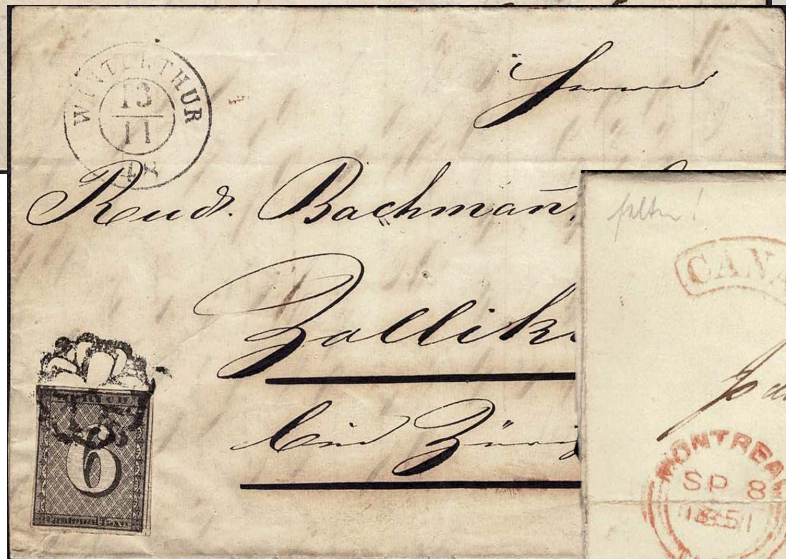 WINTERTHUR
13
11
48
Herrn
Rud. Bachmañ,
Zollik
bei Züri
ZÜRICH
6
falten!
CANA
Pa
MONTREAL
SP 8
1851